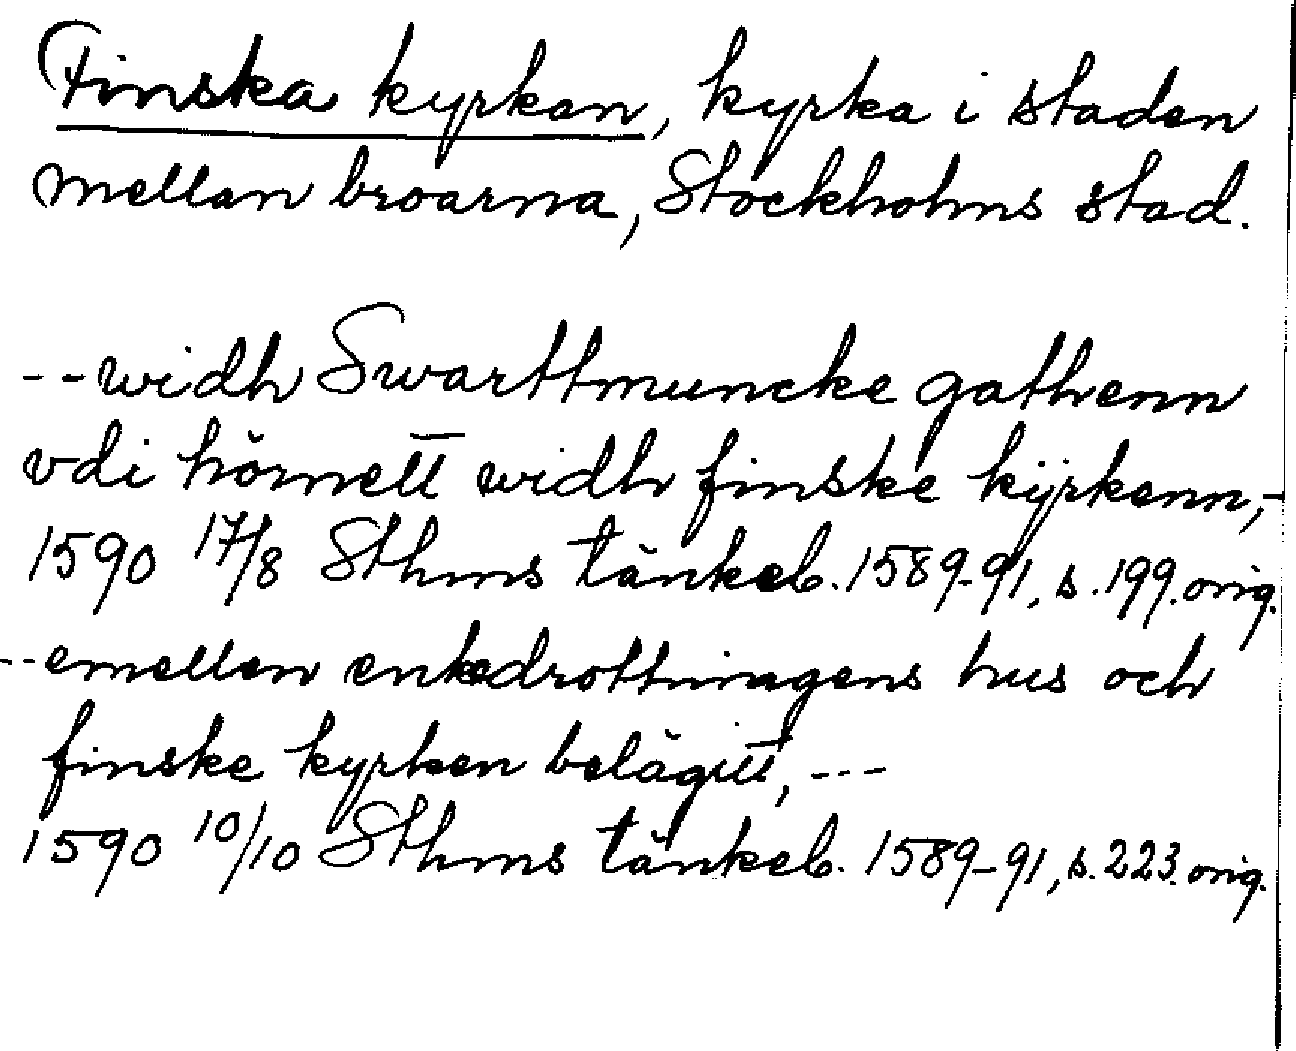 Finska kyrkan, kyrka i staden
mellan broarna, Stockholms stad.
--widh Swarttmuncke gathenn
vdi hörnett widh finske kÿrkenn,-
1590 17/8 Sthms tänkeb. 1589-91, s. 199. orig.
--emellan enkedrottningens hus och
finske kyrken belägitt, ---
1590 10/10 Sthms tänkeb. 1589-91, s. 223. orig.